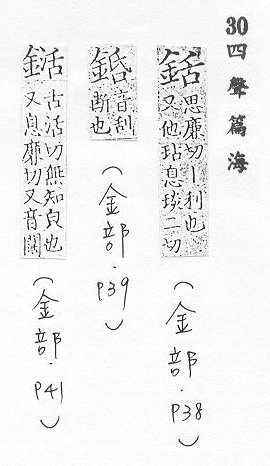 30 四聲篇海
銛
思廉切丨利也
又他玷息琰二切
（金部．P38）
音刮
断也
（金部．P39）
銛
古活切無知皃也
又息廉切又音闊
（金部．P41）